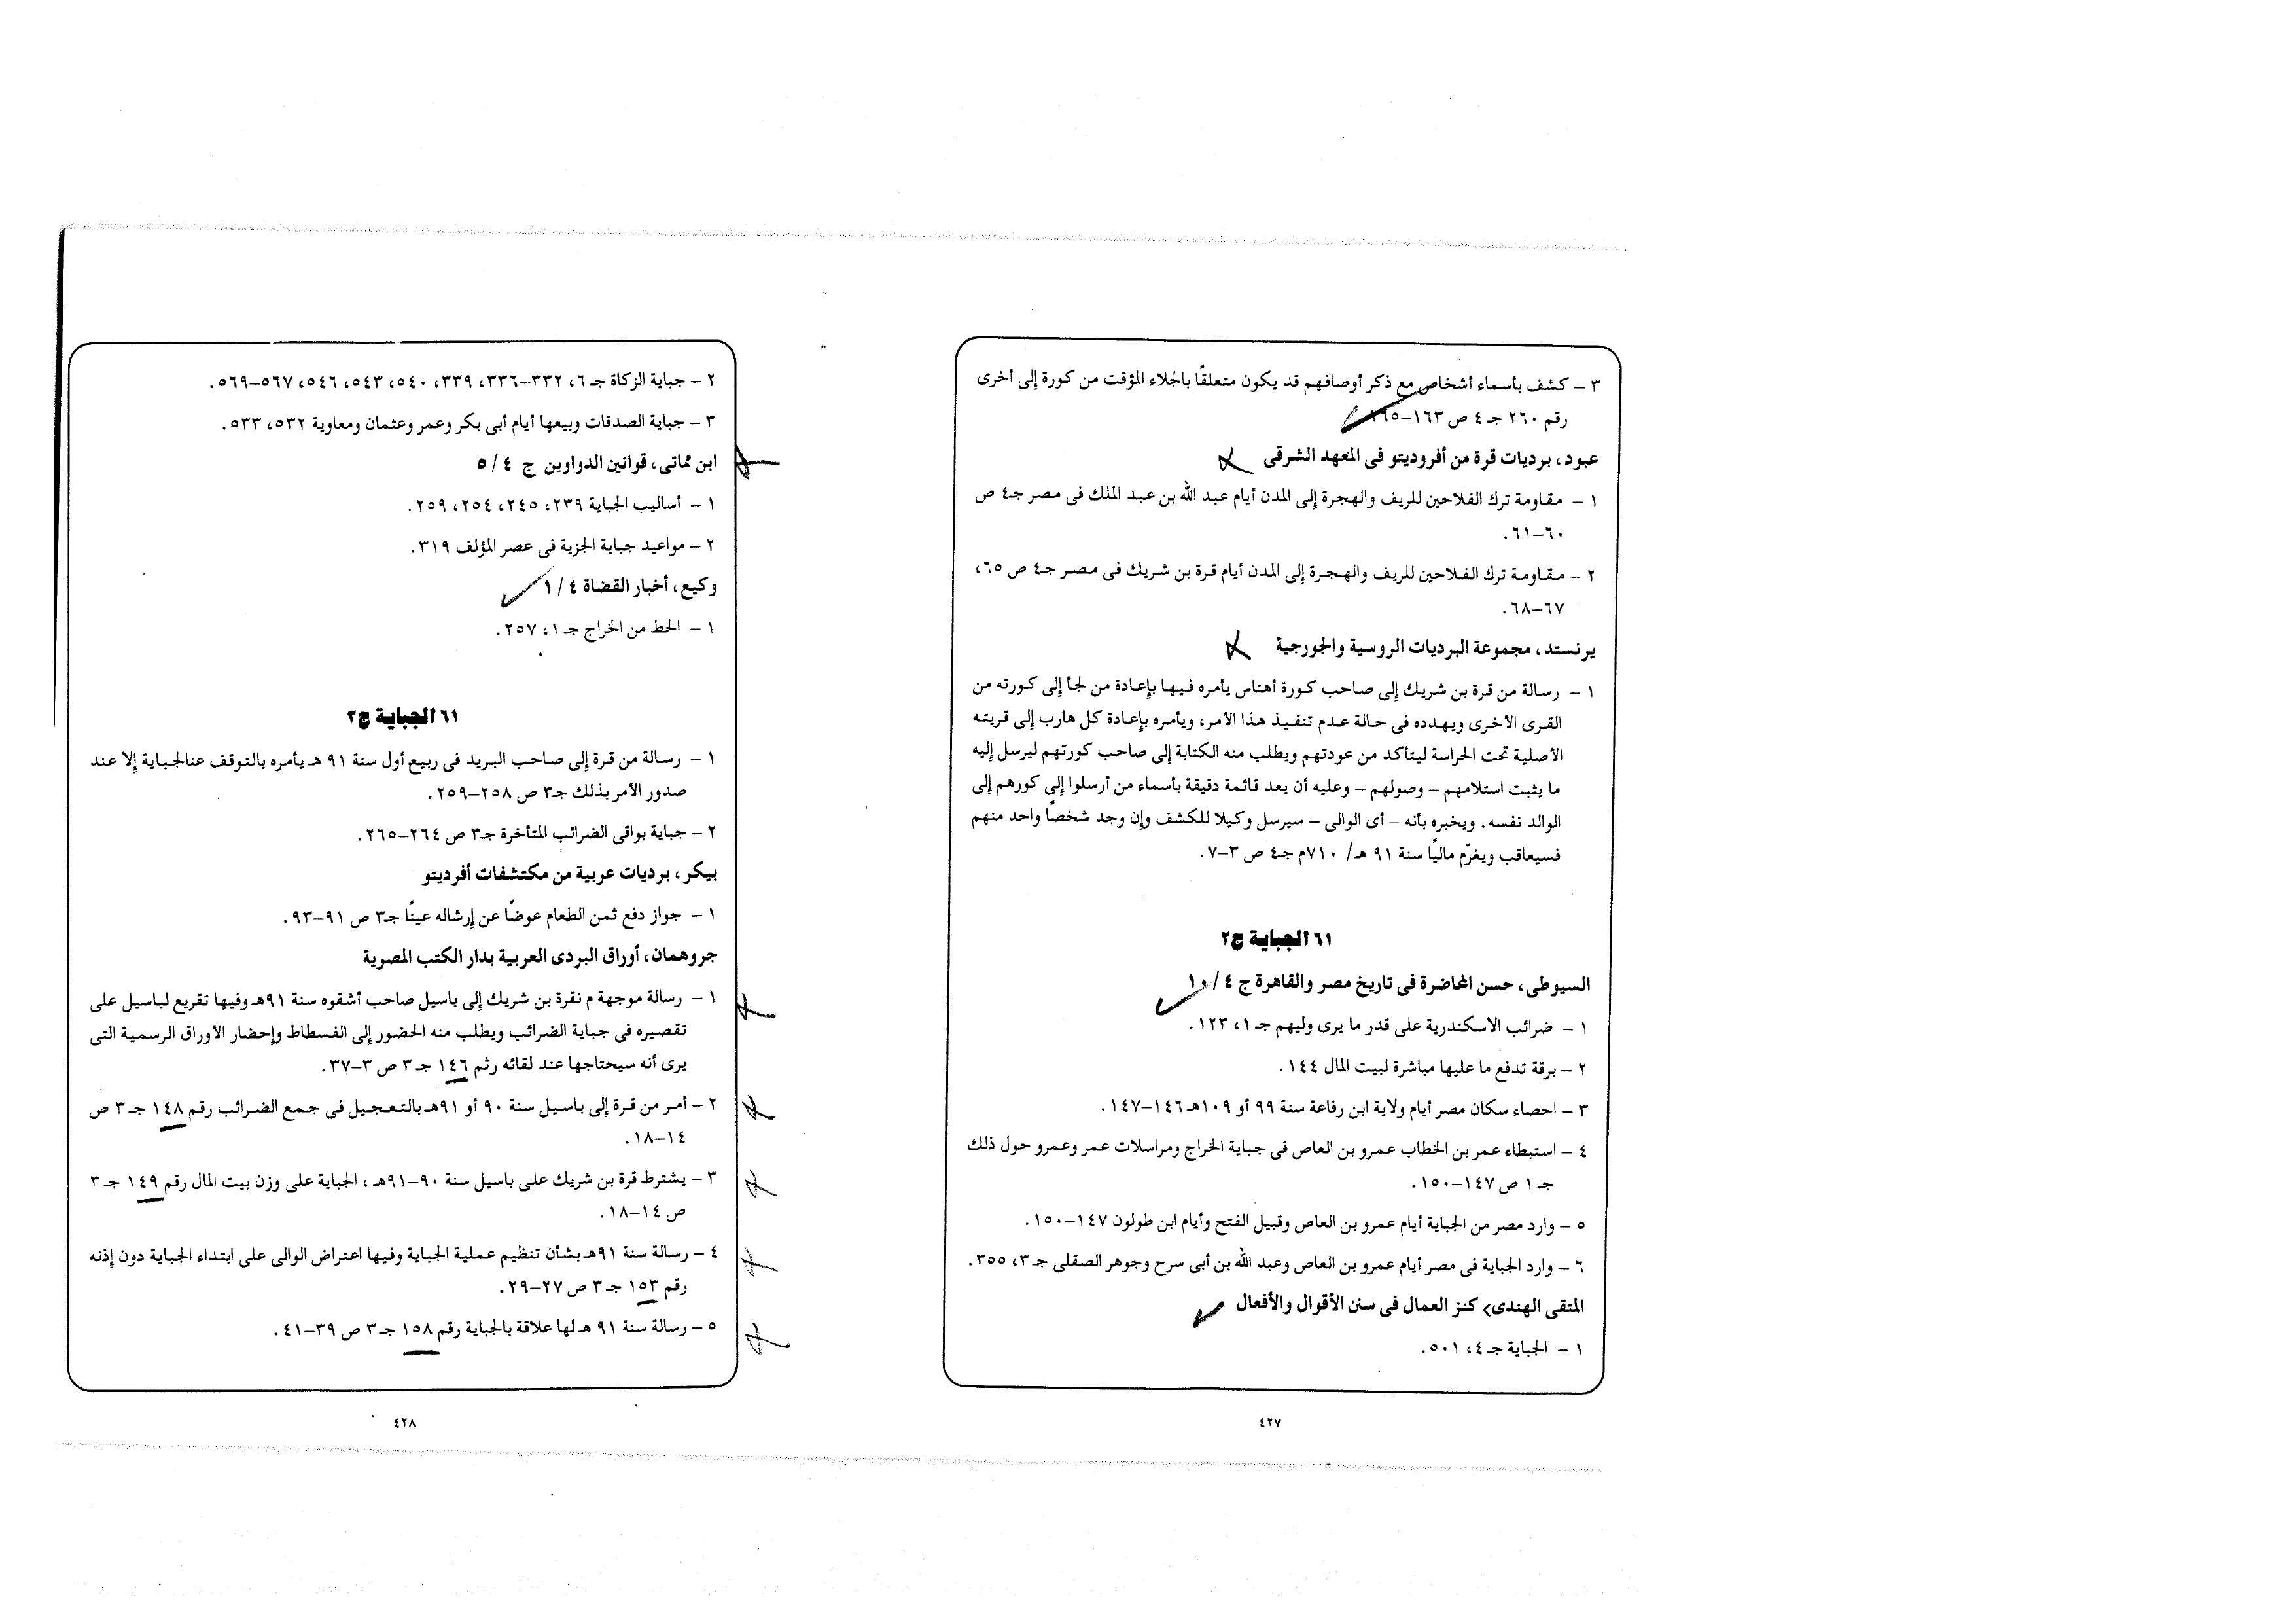 ٣ – كشف بأسماء أشخاص مع ذكر أوصافهم قد يكون متعلقًا بالجلاء المؤقت من كورة إلى أخرى
رقم ٢٦٠ جـ ٤ ص ١٦٣–١٦٥.
عبود، برديات قرة من أفروديتو فى المعهد الشرقى
١ – مقاومة ترك الفلاحين للريف والهجرة إلى المدن أيام عبد الله بن عبد الملك فى مصر جـ٤ ص
٦٠–٦١.
٢ – مقاومة ترك الفلاحين للريف والهجرة إلى المدن أيام قرة بن شريك فى مصر جـ٤ ص ٦٥،
٦٧–٦٨.
يرنستد، مجموعة البرديات الروسية والجورجية
١ – رسالة من قرة بن شريك إلى صاحب كورة أهناس يأمره فيها بإعادة من لجأ إلى كورته من
القرى الأخرى ويهدده فى حالة عدم تنفيذ هذا الأمر، ويأمره بإعادة كل هارب إلى قريته
الأصلية تحت الحراسة ليتأكد من عودتهم ويطلب منه الكتابة إلى صاحب كورتهم ليرسل إليه
ما يثبت استلامهم – وصولهم – وعليه أن يعد قائمة دقيقة بأسماء من أرسلوا إلى كورهم إلى
الوالد نفسه. ويخبره بأنه – أى الوالى – سيرسل وكيلا للكشف وإن وجد شخصًا واحد منهم
فسيعاقب ويغرّم ماليًا سنة ٩١ هـ/ ٧١٠م جـ٤ ص ٣–٧.
٦١ الجباية ج٢
السيوطى، حسن المحاضرة فى تاريخ مصر والقاهرة ج ٤ / ١٠
١ – ضرائب الاسكندرية على قدر ما يرى وليهم جـ ١، ١٢٣.
٢ – برقة تدفع ما عليها مباشرة لبيت المال ١٤٤.
٣ – احصاء سكان مصر أيام ولاية ابن رفاعة سنة ٩٩ أو ١٠٩هـ ١٤٦–١٤٧.
٤ – استبطاء عمر بن الخطاب عمرو بن العاص فى جباية الخراج ومراسلات عمر وعمرو حول ذلك
جـ ١ ص ١٤٧–١٥٠.
٥ – وارد مصر من الجباية أيام عمرو بن العاص وقبيل الفتح وأيام ابن طولون ١٤٧–١٥٠.
٦ – وارد الجباية فى مصر أيام عمرو بن العاص وعبد الله بن أبى سرح وجوهر الصقلى جـ ٣، ٣٥٥.
المتقى الهندى> كنز العمال فى سنن الأقوال والأفعال
١ – الجباية جـ ٤، ٥٠١.
٤٢٧
٢ – جباية الزكاة جـ ٦، ٣٣٢–٣٣٦، ٣٣٩، ٥٤٠، ٥٤٣، ٥٤٦، ٥٦٧–٥٦٩.
٣ – جباية الصدقات وبيعها أيام أبى بكر وعمر وعثمان ومعاوية ٥٣٢، ٥٣٣.
ابن مماتى، قوانين الدواوين ج ٤ / ٥
١ – أساليب الجباية ٢٣٩، ٢٤٥، ٢٥٤، ٢٥٩.
٢ – مواعيد جباية الجزية فى عصر المؤلف ٣١٩.
وكيع، أخبار القضاة ٤ / ١
١ – الحط من الخراج جـ ١، ٢٥٧.
٦١ الجباية ج٣
١ – رسالة من قرة إلى صاحب البريد فى ربيع أول سنة ٩١ هـ يأمره بالتوقف عنالجباية إلا عند
صدور الأمر بذلك جـ٣ ص ٢٥٨–٢٥٩.
٢ – جباية بواقى الضرائب المتأخرة جـ٣ ص ٢٦٤–٢٦٥.
بيكر، برديات عربية من مكتشفات أفرديتو
١ – جواز دفع ثمن الطعام عوضًا عن إرشاله عينًا جـ٣ ص ٩١–٩٣.
جروهمان، أوراق البردى العربية بدار الكتب المصرية
١ – رسالة موجهة م نقرة بن شريك إلى باسيل صاحب أشقوه سنة ٩١هـ وفيها تقريع لباسيل على
تقصيره فى جباية الضرائب ويطلب منه الحضور إلى الفسطاط وإحضار الأوراق الرسمية التى
يرى أنه سيحتاجها عند لقائه رثم ١٤٦ جـ ٣ ص ٣–٣٧.
٢ – أمر من قرة إلى باسيل سنة ٩٠ أو ٩١هـ بالتعجيل فى جمع الضرائب رقم ١٤٨ جـ ٣ ص
١٤–١٨.
٣ – يشترط قرة بن شريك على باسيل سنة ٩٠–٩١هـ، الجباية على وزن بيت المال رقم ١٤٩ جـ ٣
ص ١٤–١٨.
٤ – رسالة سنة ٩١هـ بشأن تنظيم عملية الجباية وفيها اعتراض الوالى على ابتداء الجباية دون إذنه
رقم ١٥٣ جـ ٣ ص ٢٧–٢٩.
٥ – رسالة سنة ٩١ هـ لها علاقة بالجباية رقم ١٥٨ جـ ٣ ص ٣٩–٤١.
٤٢٨